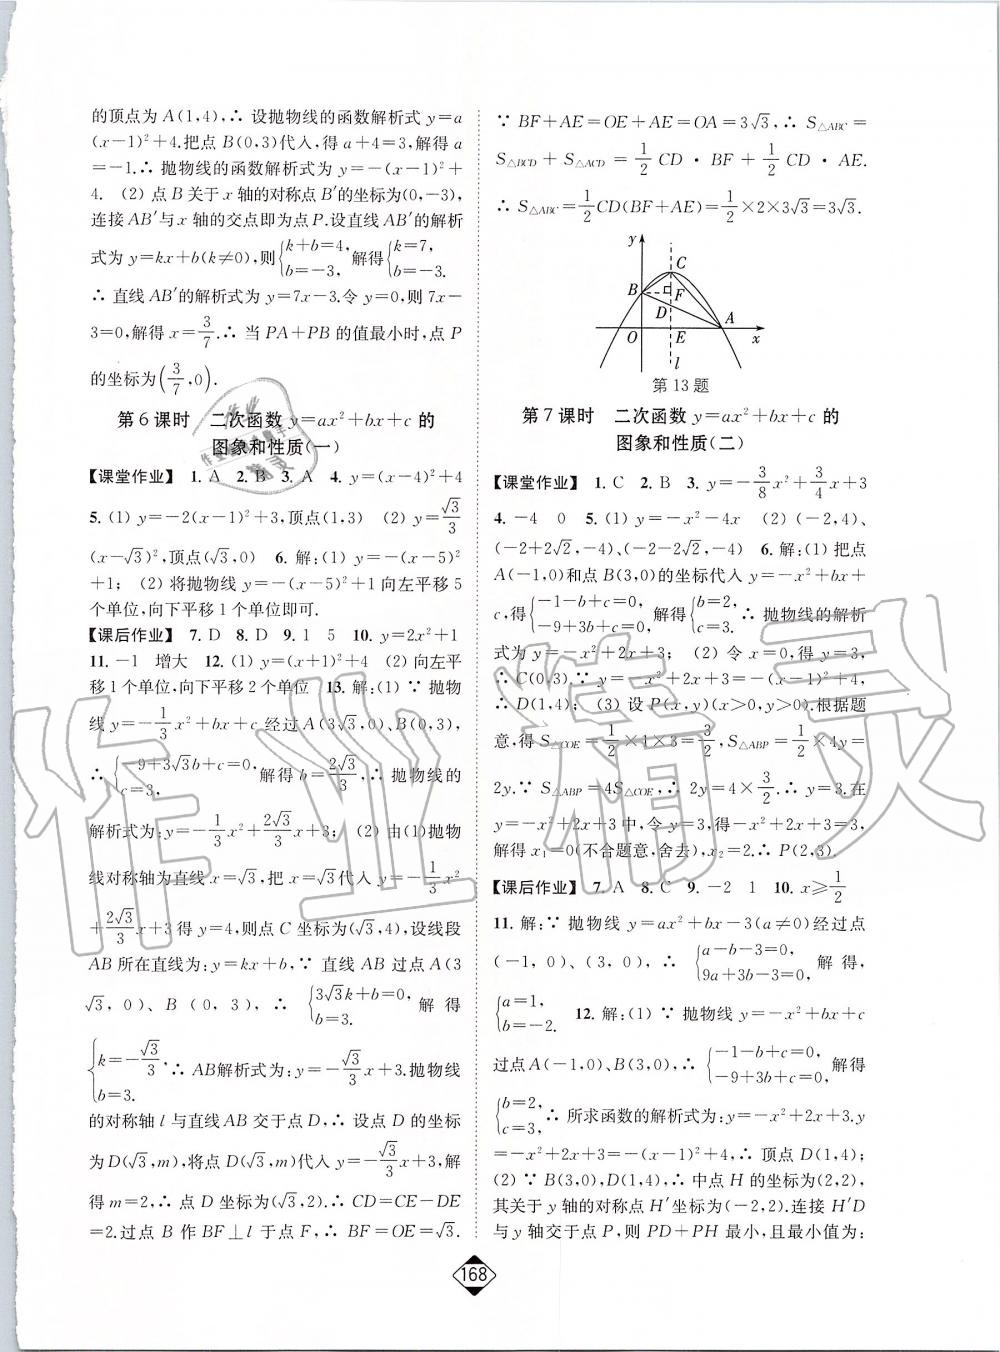 的顶点为 A(1,4),∴ 设抛物线的函数解析式 y=a
(x-1)²+4.把点 B(0,3)代入,得 a+4=3,解得 a
=-1.∴ 抛物线的函数解析式为 y=-(x-1)²+
4. (2) 点 B 关于 x 轴的对称点 B′的坐标为(0,-3),
连接 AB′与 x 轴的交点即为点 P.设直线 AB′的解析
式为 y=kx+b(k≠0),则{k+b=4, b=-3, 解得{k=7, b=-3.
∴ 直线 AB′的解析式为 y=7x-3.令 y=0,则 7x-
3=0,解得 x=3/7.∴ 当 PA+PB 的值最小时,点 P
的坐标为(3/7,0).
第 6 课时 二次函数 y=ax²+bx+c 的
图象和性质(一)
【课堂作业】 1. A 2. B 3. A 4. y=(x-4)²+4
5. (1) y=-2(x-1)²+3,顶点(1,3) (2) y=√3/3
(x-√3)²,顶点(√3,0) 6. 解:(1) y=-(x-5)²
+1; (2) 将抛物线 y=-(x-5)²+1 向左平移 5
个单位,向下平移 1 个单位即可.
【课后作业】 7. D 8. D 9. 1 5 10. y=2x²+1
11. -1 增大 12. (1) y=(x+1)²+4 (2) 向左平
移 1 个单位,向下平移 2 个单位 13. 解:(1) ∵ 抛物
线 y=-1/3x²+bx+c 经过 A(3√3,0)、B(0,3),
∴ {-9+3√3b+c=0, c=3, 解得 b=2√3/3.∴ 抛物线的
解析式为:y=-1/3x²+2√3/3x+3; (2) 由(1)抛物
线对称轴为直线 x=√3,把 x=√3代入 y=-1/3x²
+2√3/3x+3 得 y=4,则点 C 坐标为(√3,4),设线段
AB 所在直线为:y=kx+b,∵ 直线 AB 过点 A(3
√3, 0)、B (0, 3), ∴ {3√3k+b=0, b=3. 解得
{k=-√3/3, b=3. ∴ AB解析式为:y=-√3/3x+3.抛物线
的对称轴 l 与直线 AB 交于点 D,∴ 设点 D 的坐标
为 D(√3,m),将点 D(√3,m)代入 y=-√3/3x+3,解
得 m=2,∴ 点 D 坐标为(√3,2).∴ CD=CE-DE
=2.过点 B 作 BF⊥l 于点 F,∴ BF=OE=√3.
∵ BF+AE=OE+AE=OA=3√3,∴ S△ABC=
S△BCD+S△ACD=1/2CD·BF+1/2CD·AE.
∴ S△ABC=1/2CD(BF+AE)=1/2×2×3√3=3√3.
y
C
B
F
D
A
O
E
x
l
第 13 题
第 7 课时 二次函数 y=ax²+bx+c 的
图象和性质(二)
【课堂作业】 1. C 2. B 3. y=-3/8x²+3/4x+3
4. -4 0 5. (1) y=-x²-4x (2) (-2,4)、
(-2+2√2,-4)、(-2-2√2,-4) 6. 解:(1) 把点
A(-1,0)和点 B(3,0)的坐标代入 y=-x²+bx+
c,得{-1-b+c=0, -9+3b+c=0, 解得{b=2, c=3. ∴ 抛物线的解析
式为 y=-x²+2x+3; (2) 令 x=0,得 y=3,∴
C(0,3).∵ y=-x²+2x+3=-(x-1)²+4,
∴ D(1,4); (3) 设 P(x,y)(x>0,y>0).根据题
意,得 S△COE=1/2×1×3=3/2,S△ABP=1/2×4y=
2y.∵ S△ABP=4S△COE,∴ 2y=4×3/2.∴ y=3.在
y=-x²+2x+3 中,令 y=3,得-x²+2x+3=3,
解得 x₁=0(不合题意,舍去),x₂=2.∴ P(2,3).
【课后作业】 7. A 8. C 9. -2 1 10. x≥1/2
11. 解:∵ 抛物线 y=ax²+bx-3(a≠0)经过点
(-1, 0)、(3, 0), ∴ {a-b-3=0, 9a+3b-3=0, 解得,
{a=1, b=-2. 12. 解:(1) ∵ 抛物线 y=-x²+bx+c
过点 A(-1,0)、B(3,0),∴ {-1-b+c=0, -9+3b+c=0, 解得
{b=2, c=3. ∴ 所求函数的解析式为:y=-x²+2x+3.y
=-x²+2x+3=-(x-1)²+4,∴ 顶点 D(1,4);
(2) ∵ B(3,0),D(1,4),∴ 中点 H 的坐标为(2,2),
其关于 y 轴的对称点 H′坐标为(-2,2).连接 H′D
与 y 轴交于点 P,则 PD+PH 最小,且最小值为:
168
作业精灵